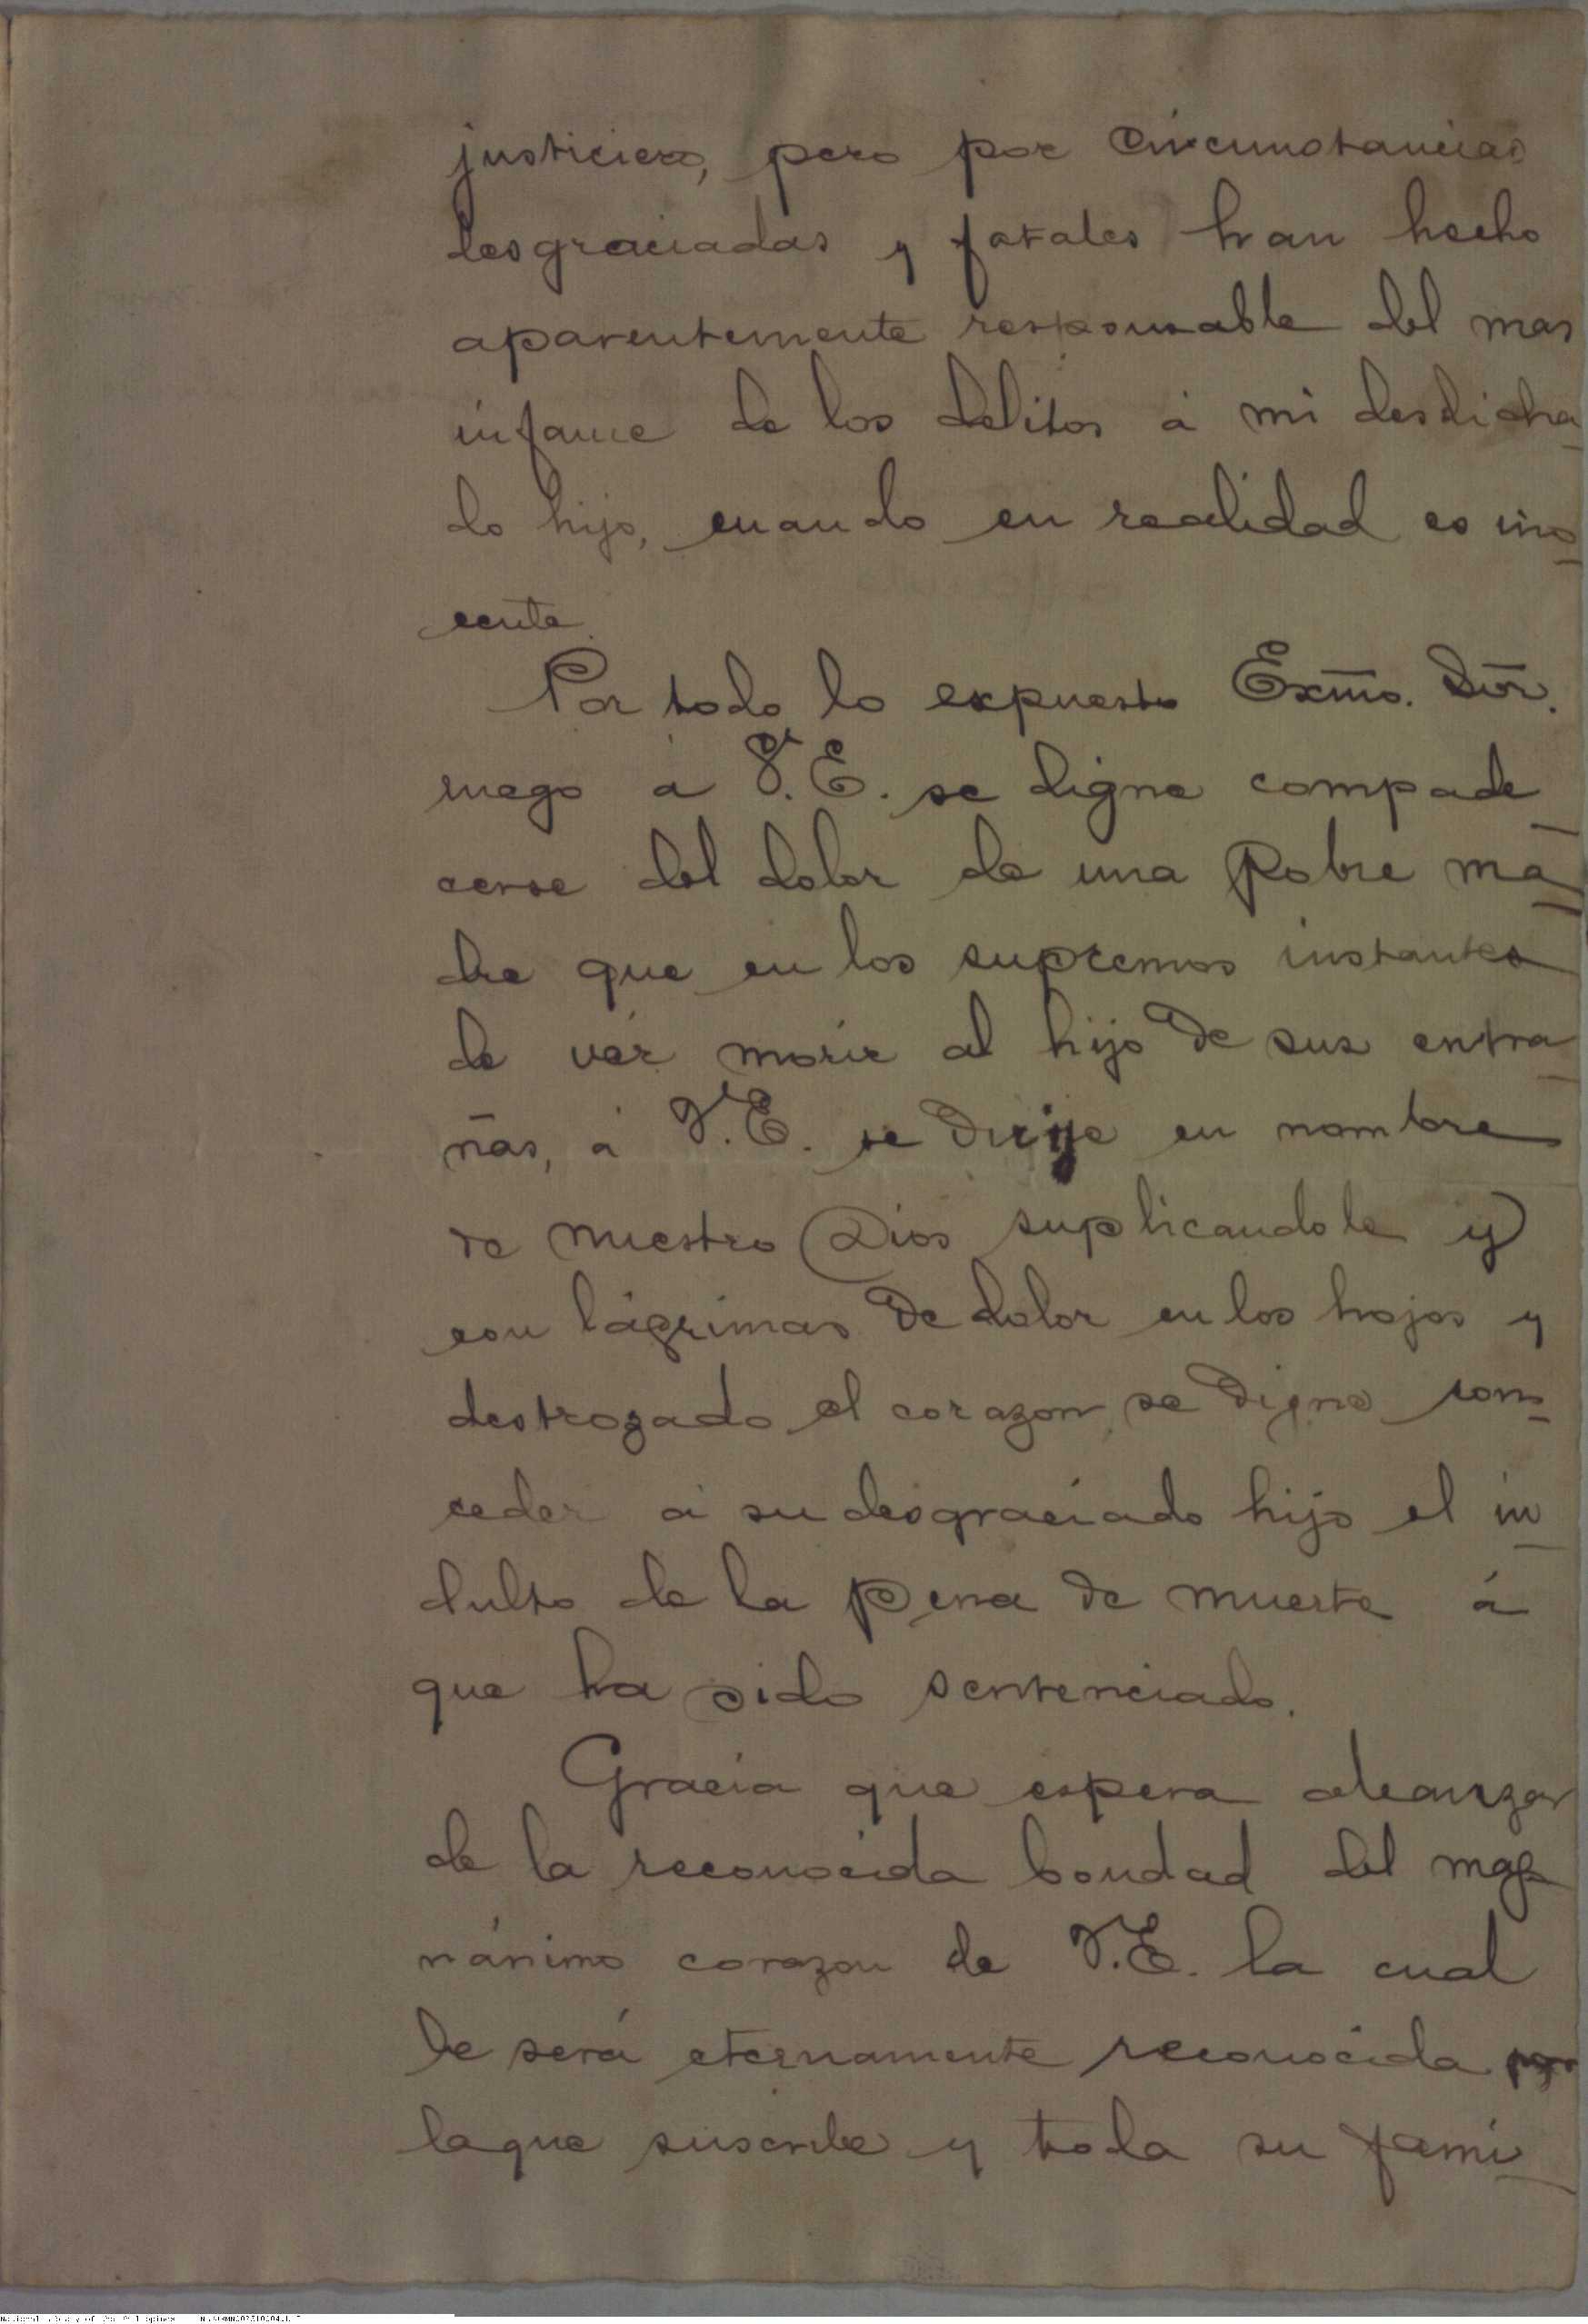 justiciero, pero por circunstancias
desgraciadas y fatales han hecho
aparentemente responsable del mas
infame de los delitos á mi desdicha-
do hijo, cuando en realidad es ino-
cente.
Por todo lo expuesto Exmo. Sor.
ruego á V.E. se digne compade-
cerse del dolor de una pobre ma-
dre que en los supremos instantes
de vér morir al hijo de sus entra-
ñas, á V.E. se dirije en nombre
de nuestro Dios suplicandole y
con lágrimas de dolor en los hojos y
destrozado el corazon, se digne con-
ceder á su desgraciado hijo el in-
dulto de la pena de muerte á
que ha sido sentenciado.
Gracia que espera alcanzar
de la reconocida bondad del mag-
nánimo corazon de V.E. la cual
le será eternamente reconocida por
la que suscribe y toda su fami-
National Library of the Philippines